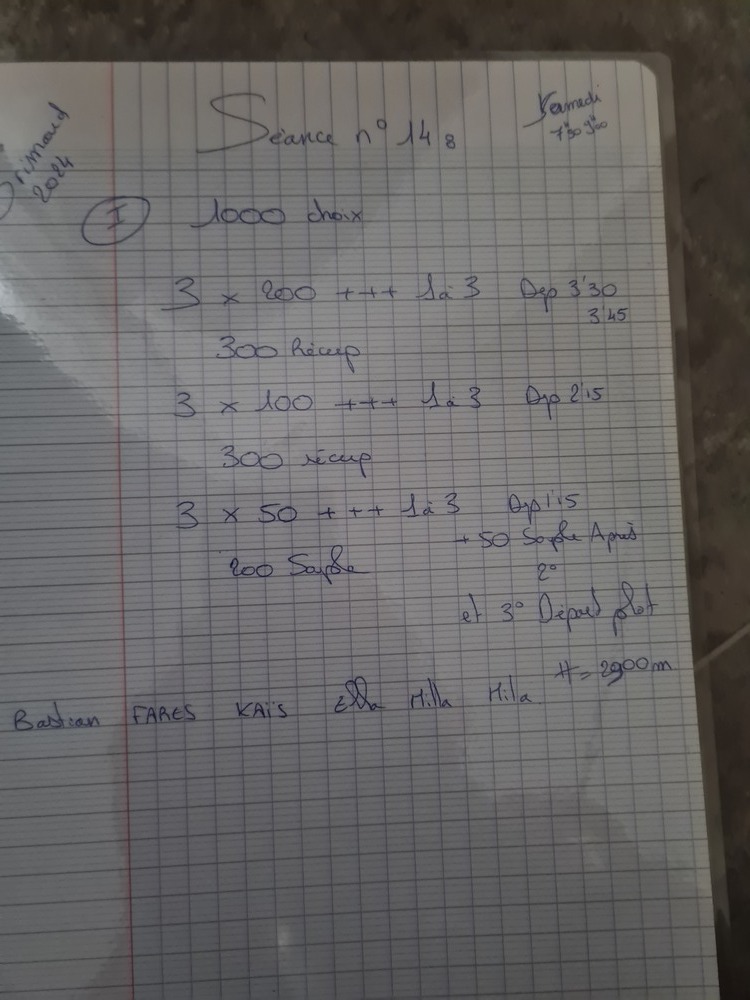 Grimaud
2024
Séance n° 148
Samedi
7h30 9h00
I 1000 choix
3 x 200 +++ 1 à 3 Dep 3'30
3'45
300 Récup
3 x 100 +++ 1 à 3 Dep 2'15
300 récup
3 x 50 +++ 1 à 3 Dep 1'15
+ 50 Souple Après
200 Souple
2°
et 3° Départ plot
= 2900m
Bastian FARES KAÏS Ella Milla Mila